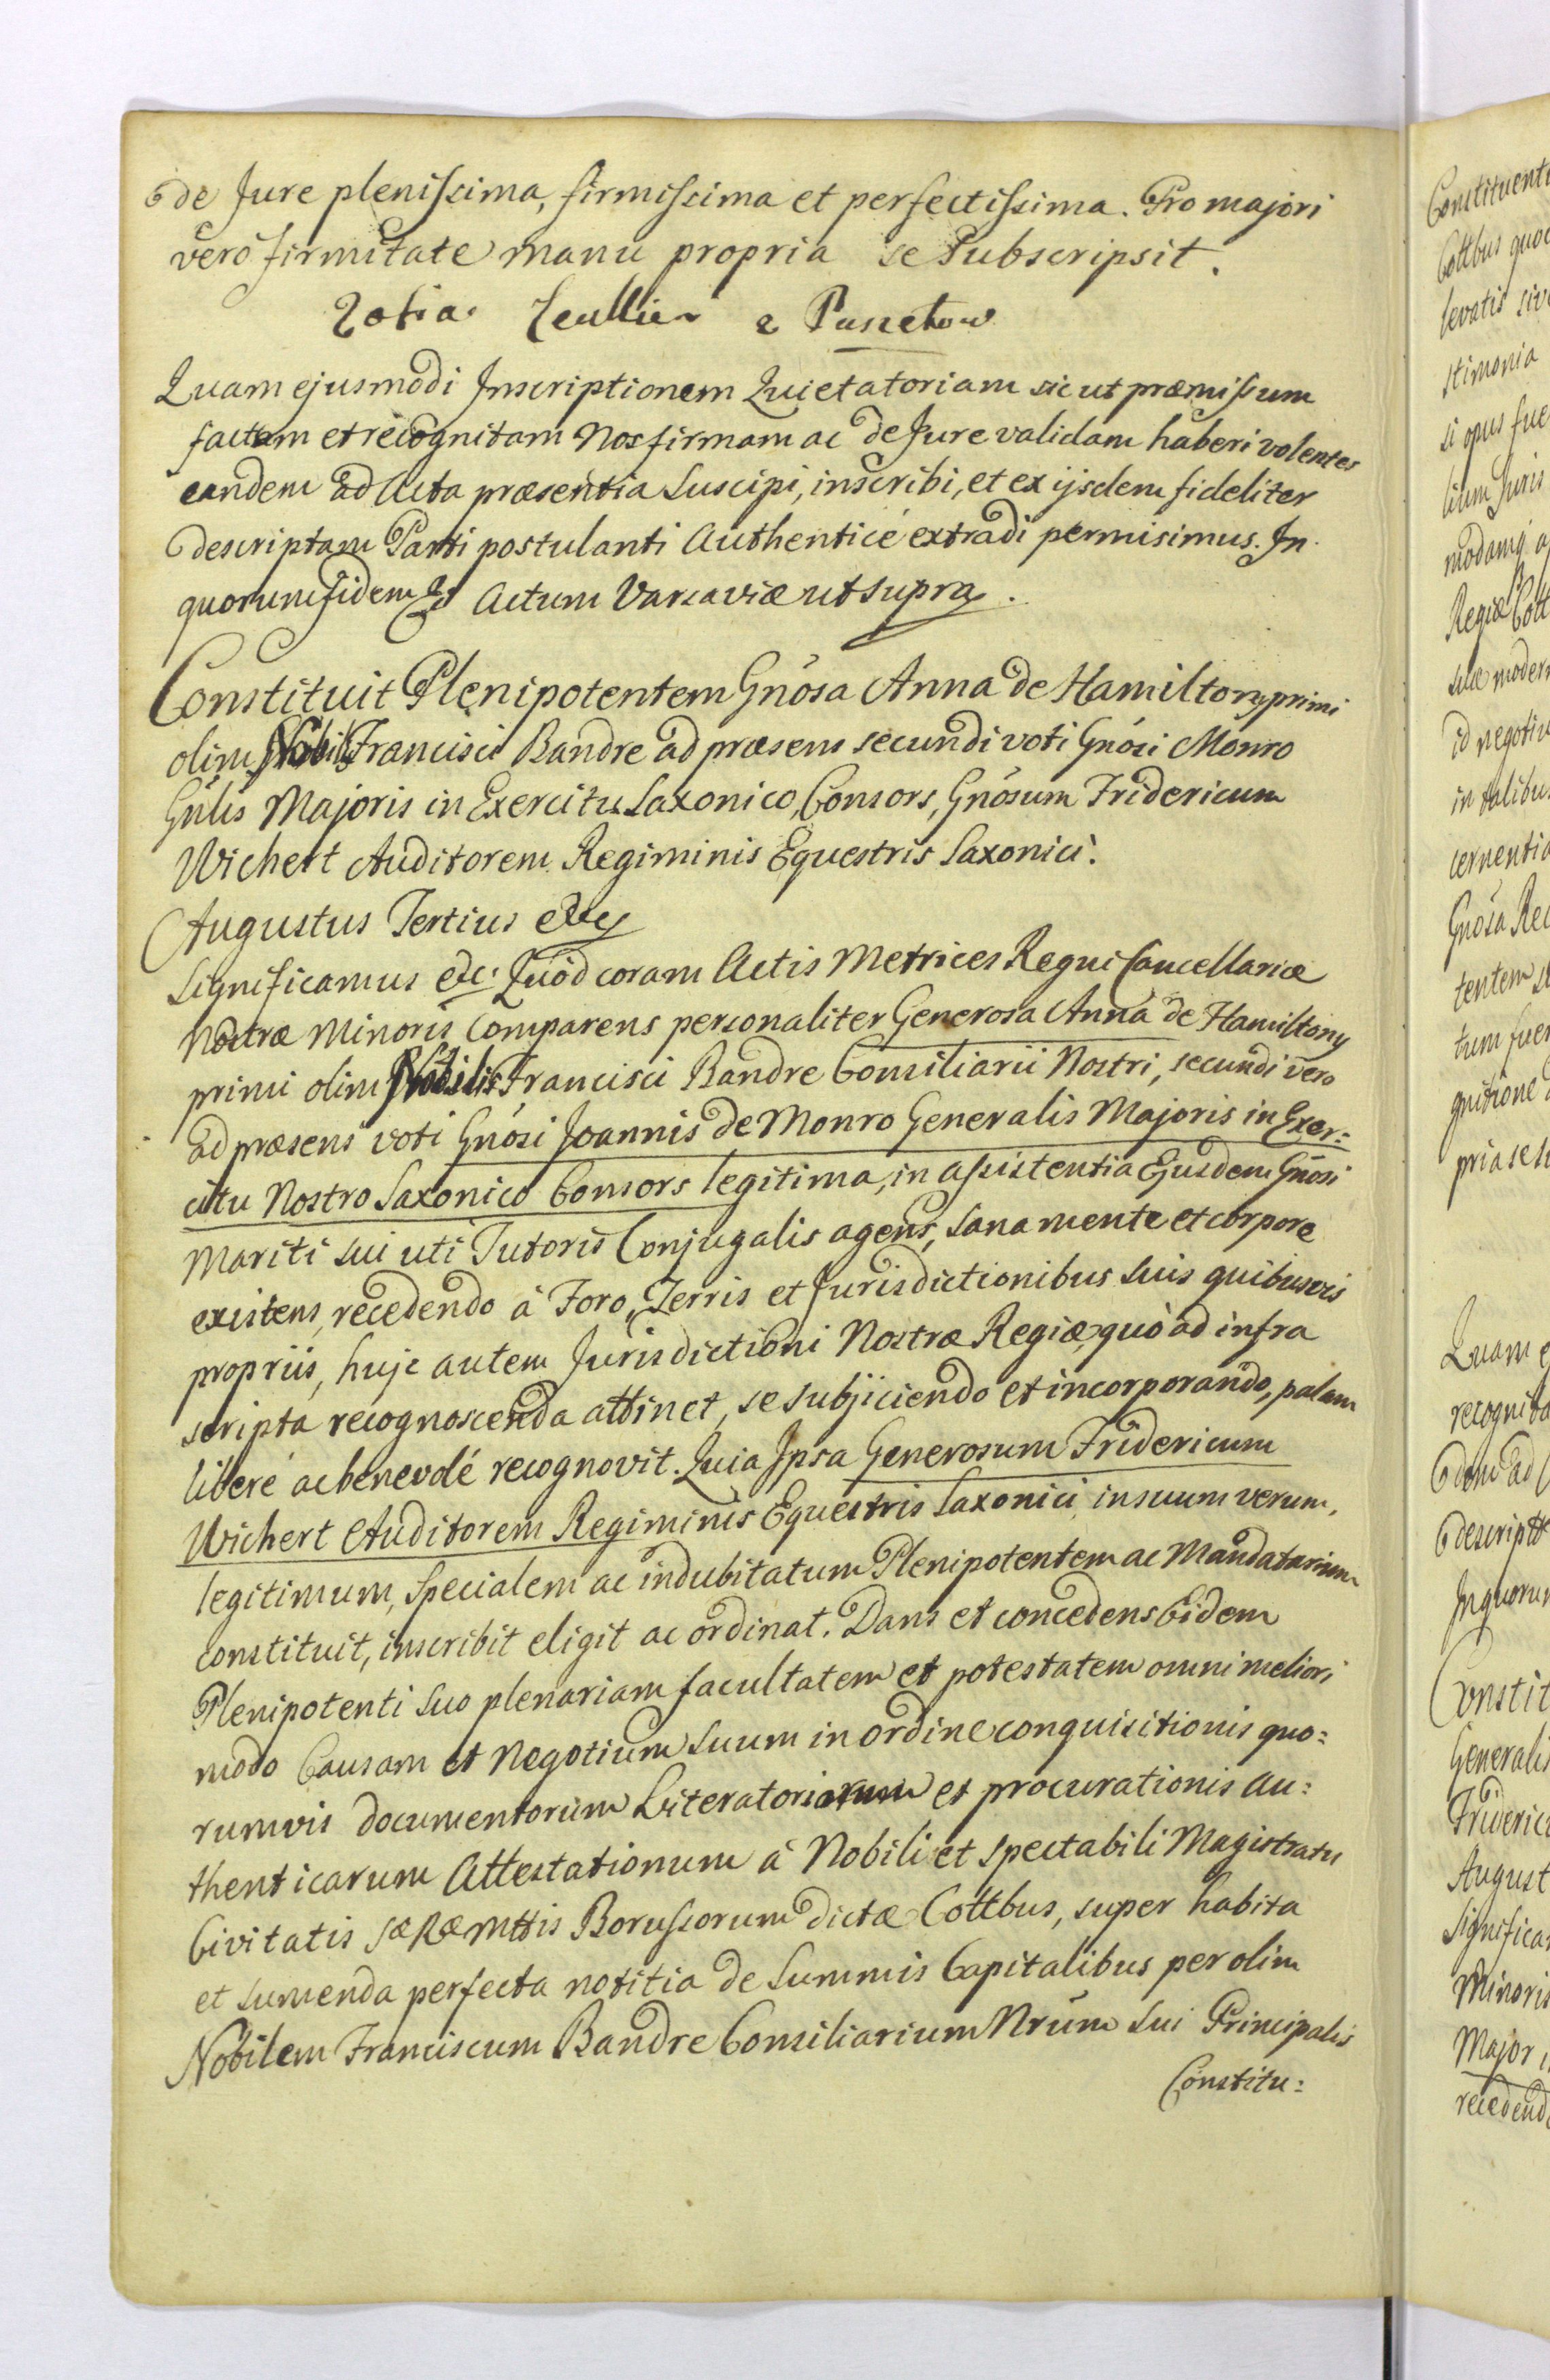 de Jure plenissima, firmissima et perfectissima. Pro majori
verò firmitate manu propria se Subscripsit.
Zofia
Quam ejusmodi Inscriptionem Quietatoriam sic ut præmissum
factam et recognitam Nos firmam ac de Jure validam haberi volentes
eandem ad Acta præsentia Suscipi, inscribi, et ex ijsdem fideliter
descriptam Parti postulanti Authenticé extradi permisimus. In
quorum fidem &c Actum Varsaviæ ut supra.
Constituit Plenipotentem Gnosa Anna de Hamiltony primi
olim Nobilis Francisci Bandre ad præsens secundi voti Gnosi Monro
Gnlis Majoris in Exercitu Saxonico, Consors, Gnosum Fridericum
Wichert Auditorem Regiminis Equestris Saxonici.
Augustus Tertius etc
Significamus etc. Quòd coram Actis Metrices Regni Cancellariæ
Nostræ Minoris Comparens personaliter Generosa Anna de Hamiltony
primi olim Nobilis Francisci Bandre Consiliarii Nostri, secundi vero
ad præsens voti Gnosi Joannis de Monro Generalis Majoris in Exer=
citu Nostro Saxonico Consors legitima, in assistentia Ejusdem Gnosi
Mariti sui uti Tutoris Conjugalis agens, sana mente et corpore
existens, recedendo à Foro, Terris et Jurisdictionibus suis quibusvis
propriis, huic autem Jurisdictioni Nostræ Regiæ, quò ad infra
scripta recognoscenda attinet, se subjiciendo et incorporando, palam
liberé ac benevolé recognovit. Quia Ipsa Generosum Fridericum
Wichert Auditorem Regiminis Equestris Saxonici in suum verum,
legitimum, Specialem ac indubitatum Plenipotentem ac Mandatarium
constituit, inscribit eligit ac ordinat. Dans et concedens Eidem
Plenipotenti Suo plenariam facultatem et potestatem omni meliori
modo Causam et Negotium Suum in ordine conquisitionis quo=
rumvis documentorum Literatoriorum et procurationis au=
thenticarum Attestationum à Nobili et Spectabili Magistratu
Civitatis Sæ Ræ Mttis Borussorum dictæ Cottbus, super habita
et sumenda perfecta notitia de Summis Capitalibus per olim
Nobilem Franciscum Bandre Consiliarium Nrum Sui Principalis
Constitu=